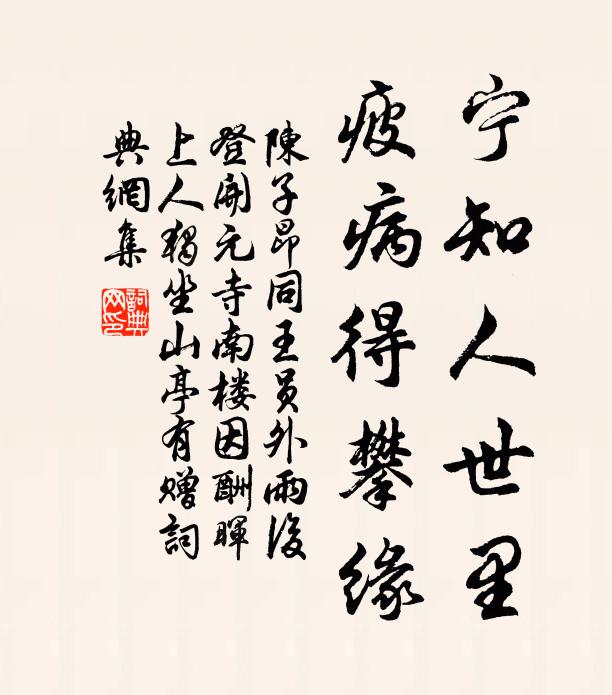 宁知人世里
疲病得攀缘
陳子昂同王员外雨後
登開元寺南楼因酬暉
上人獨坐山亭有赠詞
典網集
詞典
网印